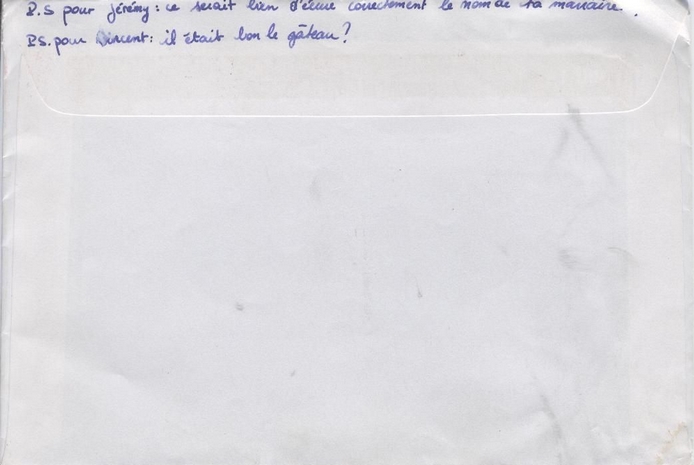 P.S pour Jérémy: ce serait bien d'écrire correctement le nom de ta marraine.
PS. pour Vincent: il était bon le gâteau?